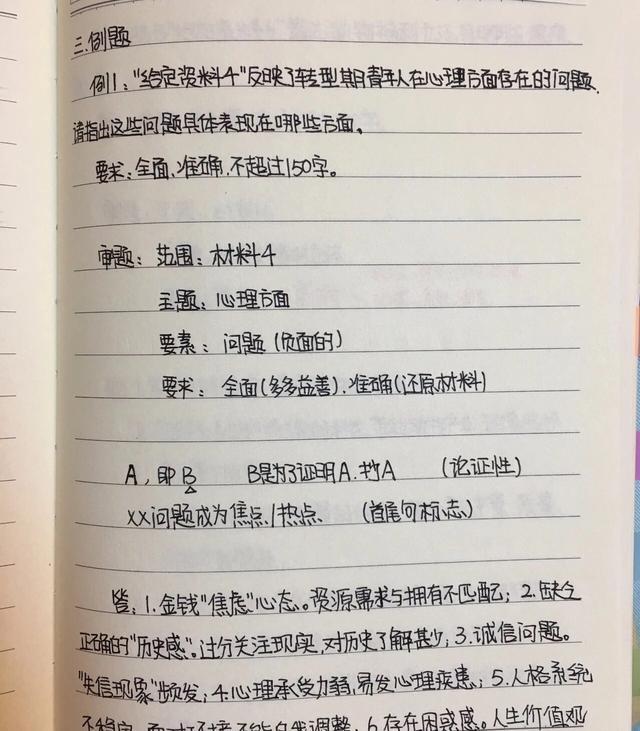 三.例题
例1:"给定资料4"反映了转型期青年人在心理方面存在的问题.
请指出这些问题具体表现在哪些方面。
要求:全面.准确.不超过150字。
审题: 范围:材料4
主题:心理方面
要素: 问题(负面的)
要求: 全面(多多益善).准确(还原材料)
A,即B B是为了证明A.抄A (论证性)
XX问题成为焦点/热点 (首尾句标志)
答:1.金钱"焦虑"心态。资源需求与拥有不匹配;2.缺乏
正确的"历史感"。过分关注现实,对历史了解甚少;3.诚信问题。
"失信现象"频发;4.心理承受力弱,易发心理疾患;5.人格系统
不稳定.面对环境不能自我调整.6.存在困惑感。人生价值观